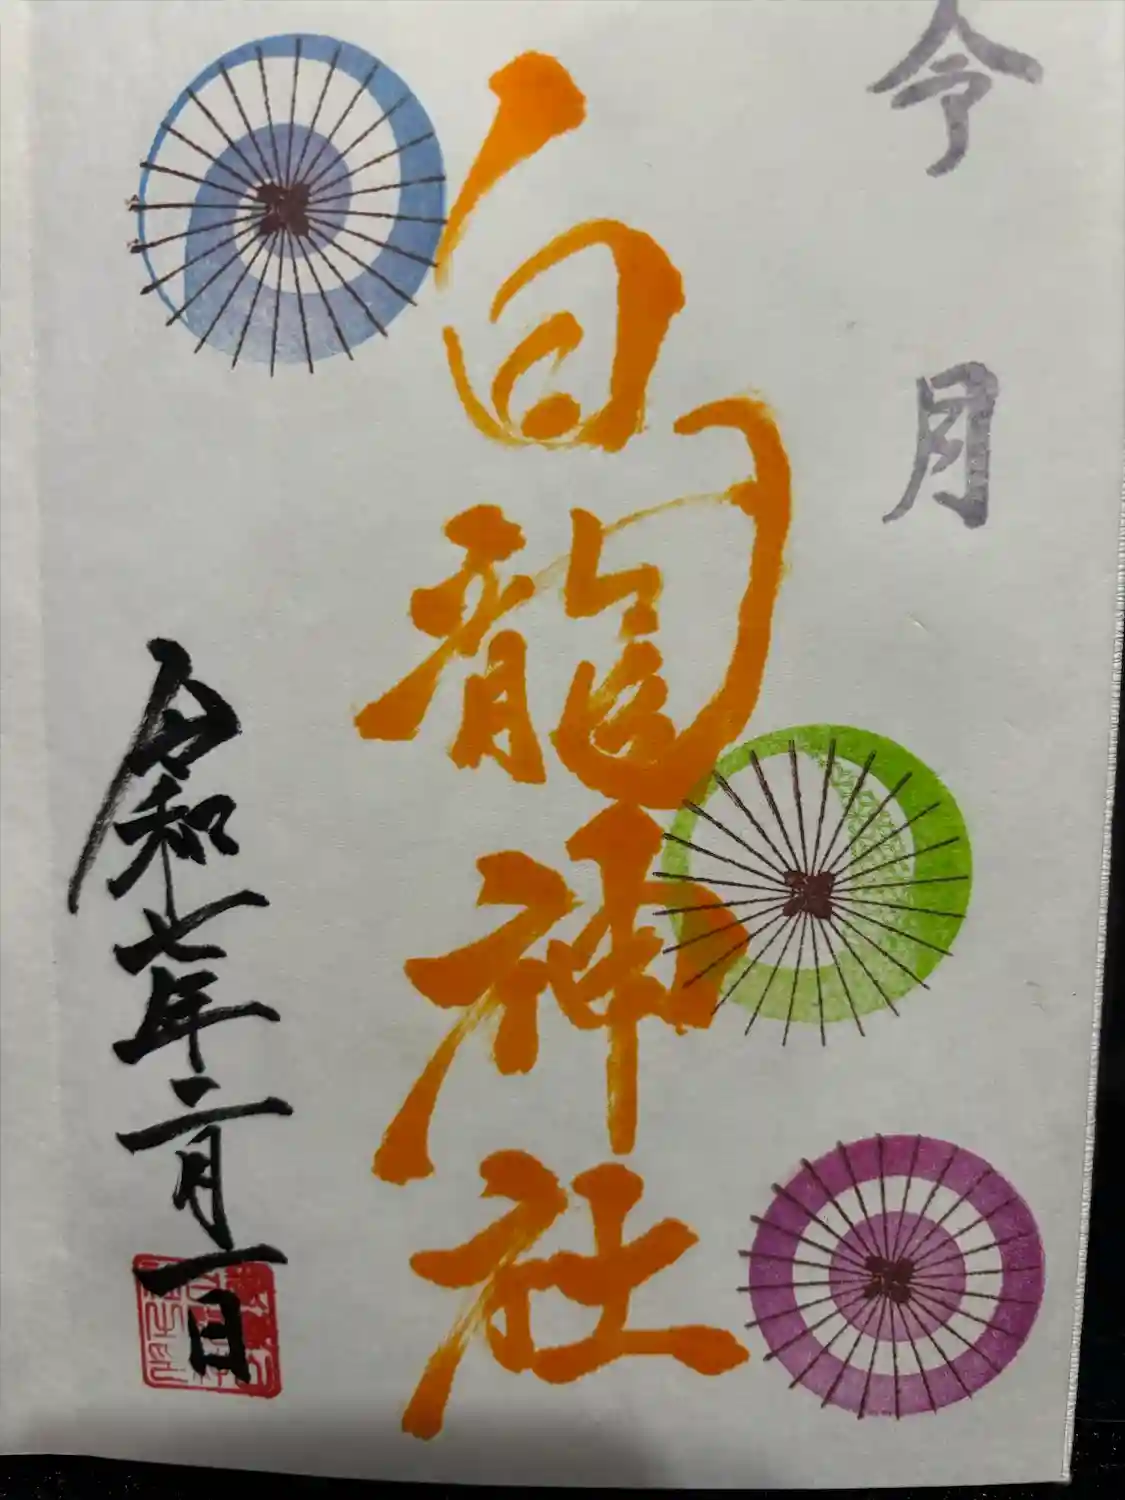 今月
白龍神社
令和七年二月一日